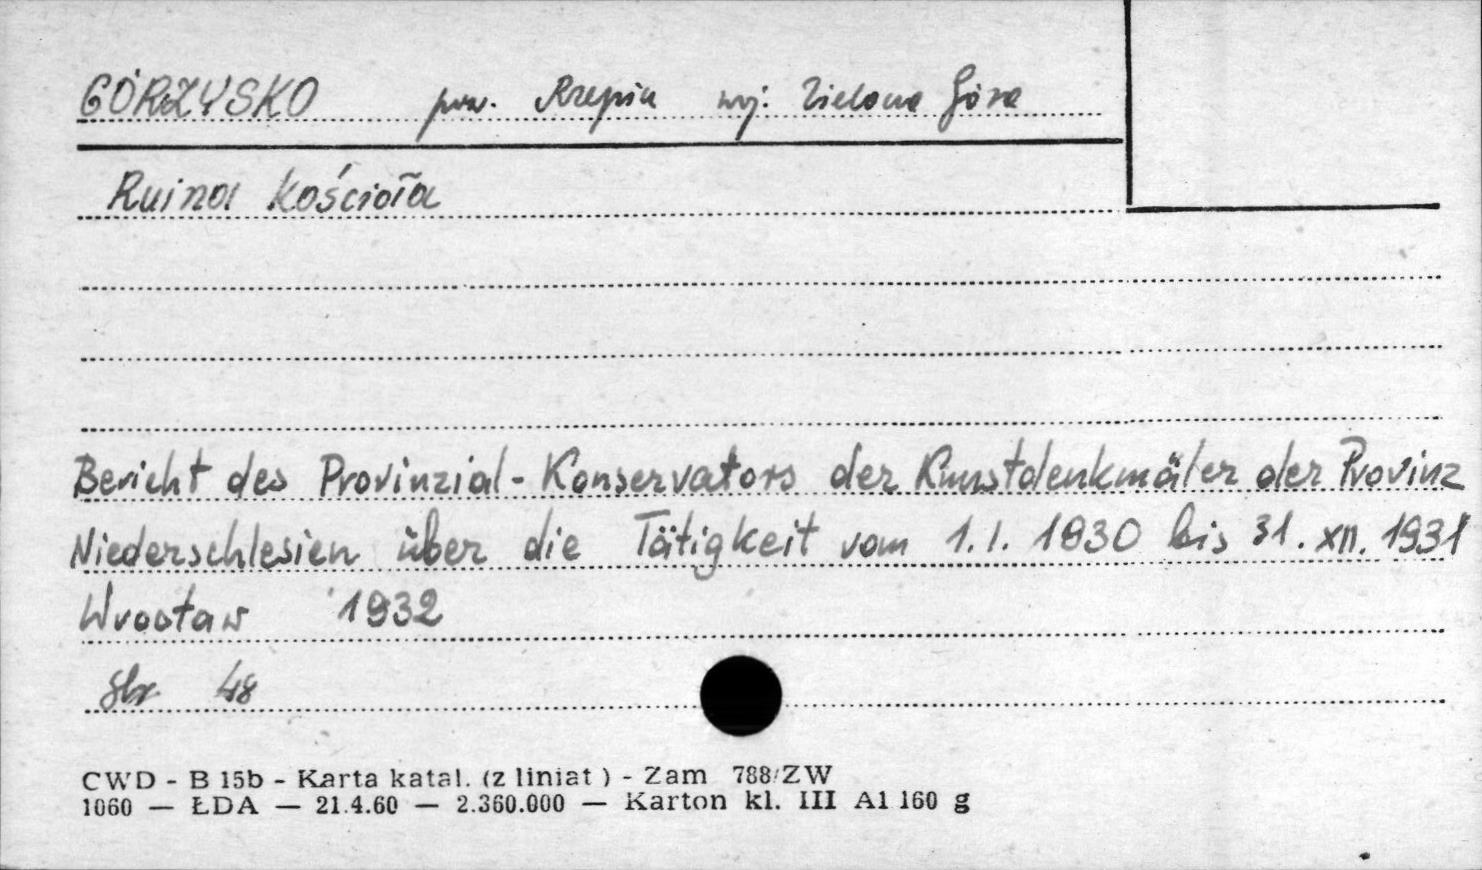 GÓRZYSKO pow. Rzepin woj. Zielona Góra
Ruina kościoła
Bericht des Provinzial-Konservators der Kunstdenkmäler der Provinz
Niederschlesien über die Tätigkeit vom 1.I. 1930 bis 31.XII.1931
Wrocław 1932
str 48
CWD - B 15b - Karta katal. (z liniat ) - Zam 788/ZW
1060 — ŁDA — 21.4.60 — 2.360.000 — Karton kl. III A1 160 g